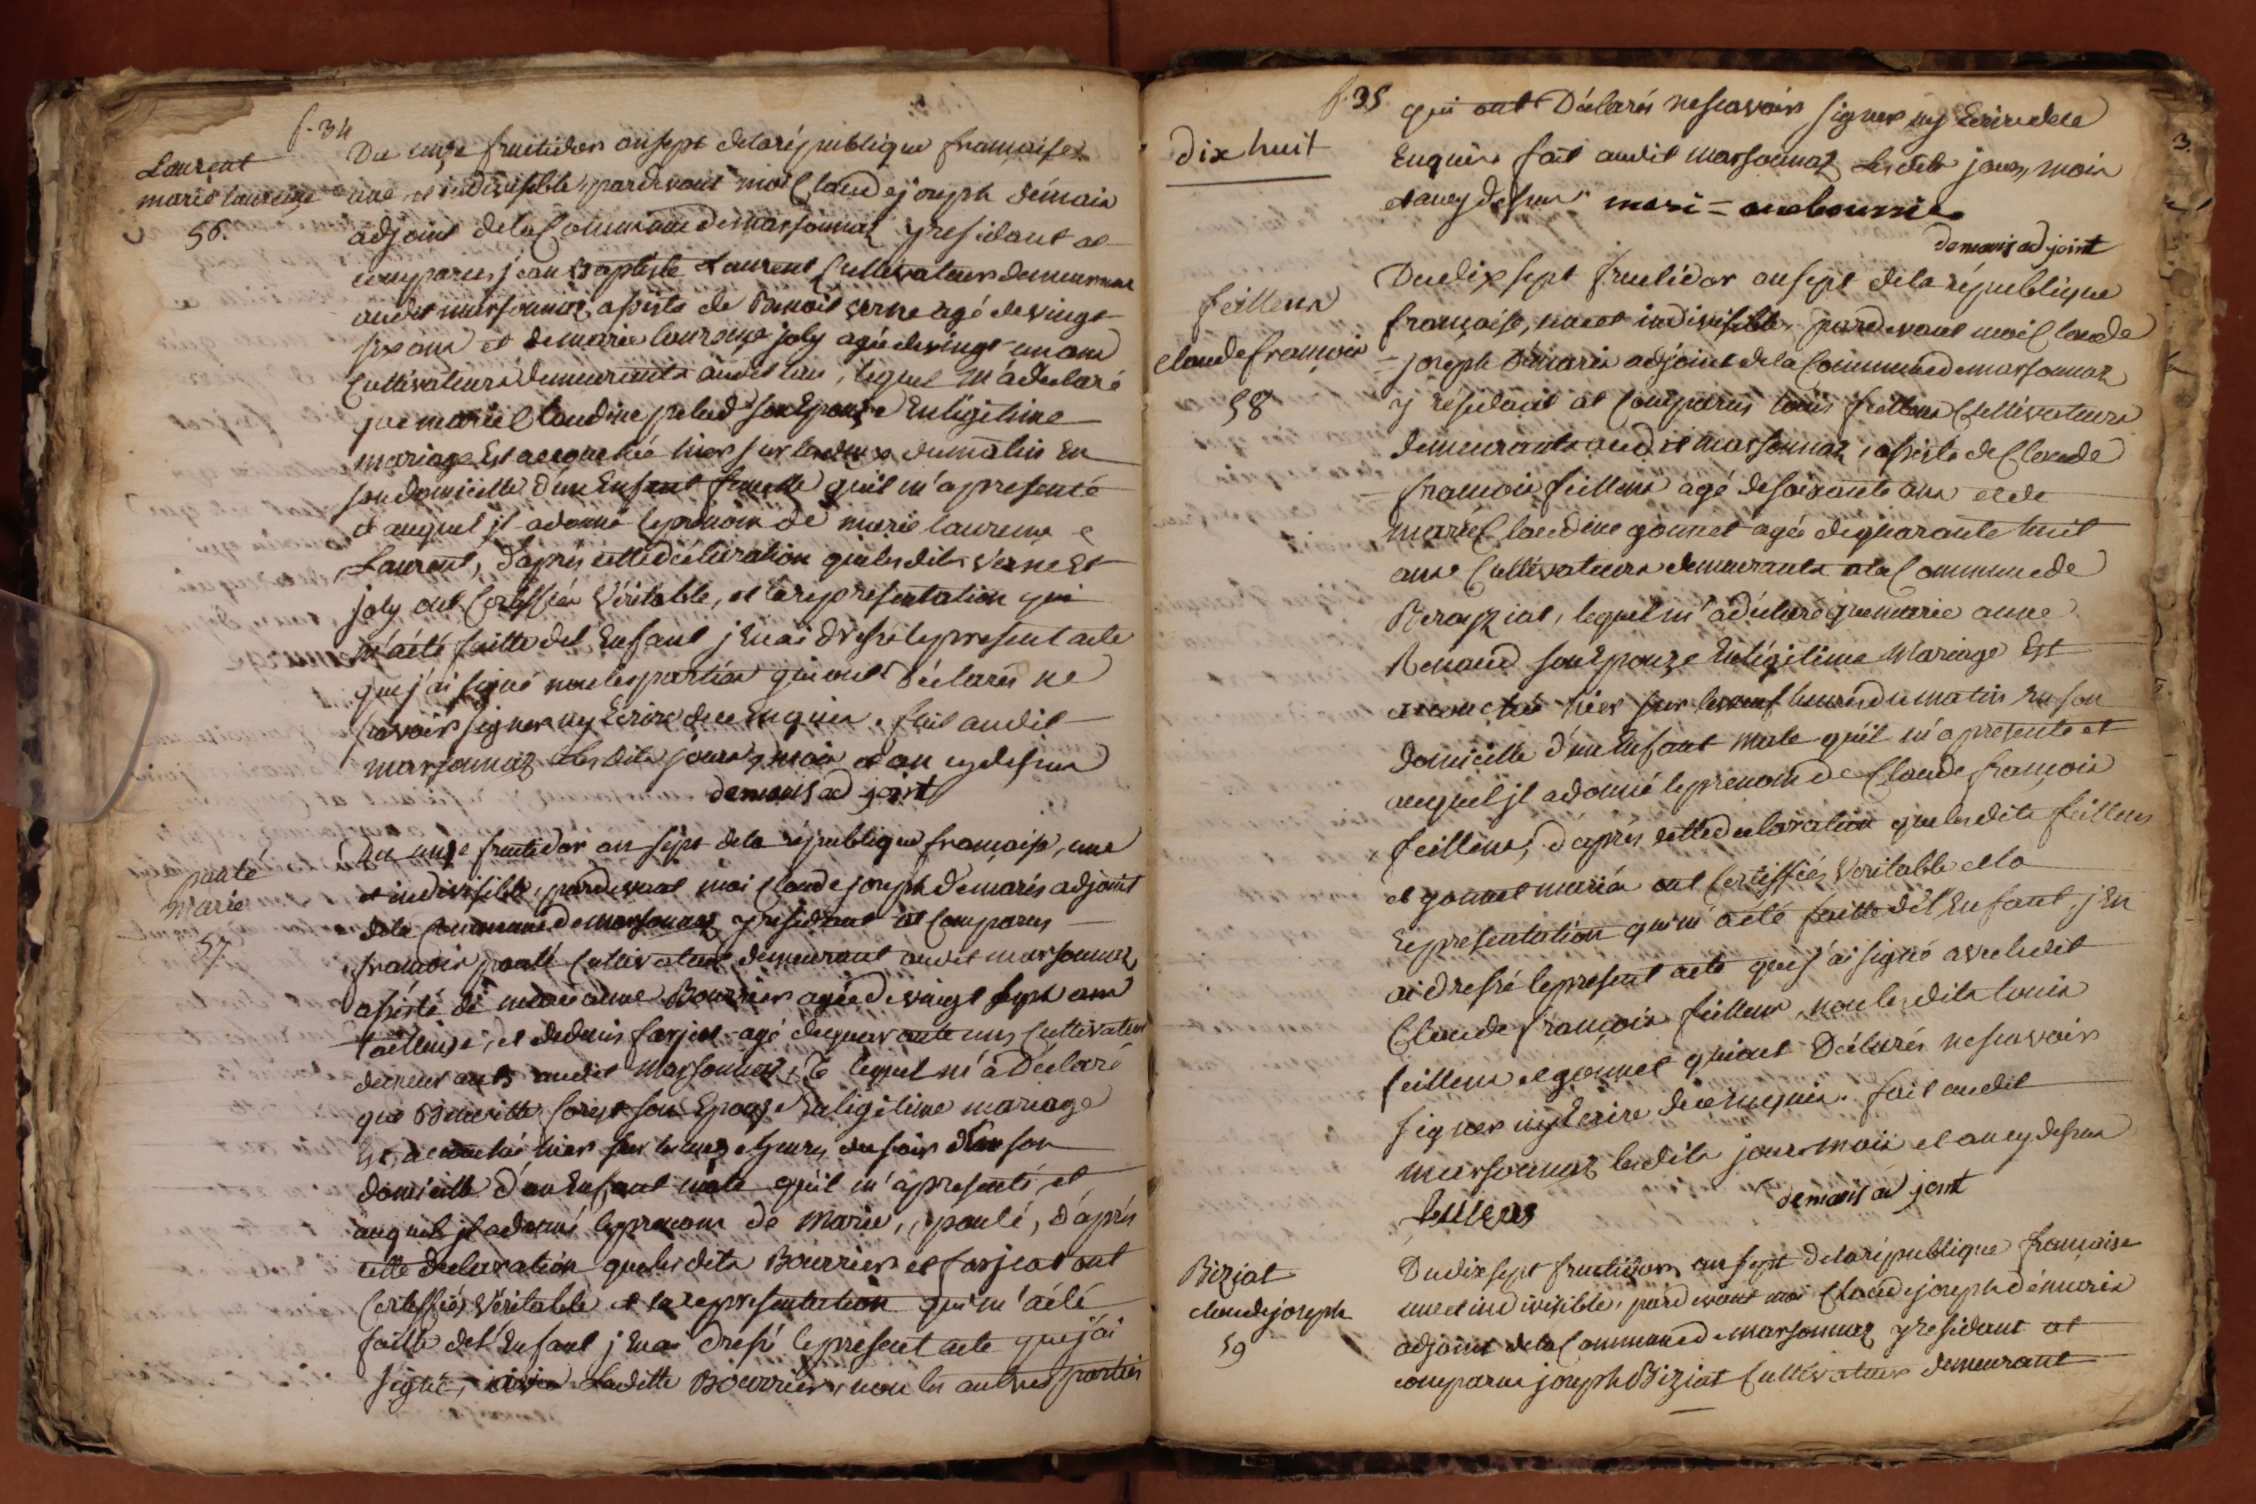 f. 34
Laurent
marie laurenze
56.
Du unze fructidor an sept de la république française
une et indivisible, pardevant moi Claude joseph démaris
adjoint de la Commune de marsonnaz y residant at
comparus jean Baptiste Laurent Cultivateur demeurant
audit marsonnaz, assisté de Benoit verne agé de vingt
six ans et de marie laurenze joly agée de vingt un ans
Cultivateurs demeurants audit lieu, lequel m'a declaré
que marie Claudine palud son Epouze En légitime
mariage Est accouchée hier sur les deux du matin En
son domicille d'un Enfant femelle qu'il m'a presenté
et auquel jl a donné le prenom de marie laurenze
Laurent, d'aprés cette déclaration que lesdits verne Et
joly ont Certiffiés véritable, et la représentation qui
m'a été faitte del Enfant j En ai dressé le present acte
que j'ai signé non les parties qui ont déclarés ne
savoir signer ny Ecrire de ce Enquis. fait audit
marsonnaz Lesdits jours, mois et an cy dessus
demaris adjoint
pauté
Marie
57
Du unze fructidor an sept de la république française, une
et indivisible, pardevant moi Claude joseph Demaris adjoint
de la Commune de marsonnaz y residant at Comparus
francois pauté Cultivateur demeurant audit marsonnaz
assisté de marie anne Bourrier agée de vingt sept ans
et de denis farjat agé de quarante uns Cultivateur
demeurants audit Marsonnaz, lequel m'a Déclaré
que son Epouze En légitime mariage
Est accouchée hier sur les heures du soir dans son
domicille d'un Enfant male qu'il m'a presenté et
auquel jl a donné le prenom de Marie, pauté, d'aprés
cette declaration que lesdits Bourrier et farjat ont
Certiffiés Véritable et la représentation qui m'a été
faitte del Enfant j En ai dressé le present acte que j'ai
signé, avec Ladite Bourrier, non les autres parties
f. 35
dix huit
qui ont Déclarés ne scavoir signer ny Ecrire de ce
Enquis fait audit marsonnaz Lesdits jour, mois
et an cy dessus mari = ane bourrier
demaris adjoint
feillens
claude francois
58
Du dix sept fructidor an sept de la république
française, une et indivisible, pardevant moi Claude
joseph Démaris adjoint de la Commune de marsonnaz
y résidant at Comparus louis feillens Cultivateurs
demeurants audit marsonnaz, assisté de Claude
francois feillens agé de soixante ans et de
marie Claudine gonnet agée de quarante huit
ans Cultivateurs demeurants a la Commune de
Berayziat, lequel m'a déclaré que marie anne
Renaud son Epouze En légitime Mariage Est
accouchée hier sur les neuf heures du matin En son
domicille d'un Enfant male qu'il m'a presenté et
auquel jl a donné le prenom de Claude françois
feillens, d'aprés cette declaration que lesdits feillens
et gonnet mariés ont Certiffiés Veritable et la
representation qui m'a été faitte del Enfant, j En
ai dressé le present acte que j'ai signé avec ledit
Claude françois feillens non lesdits louis
feillens et gonnet qui ont Déclarés ne scavoir
signer ny Ecrire de ce Enquis. fait audit
marsonnaz lesdits jour mois et an cy dessus
feillens
demaris adjoint
Biziat
claude joseph
59
Du dix sept fructidor an sept de la république française
une et indivisible, pardevant moi Claude joseph démaris
adjoint de la Commune de marsonnaz y residant at
comparus joseph Biziat Cultivateur demeurant